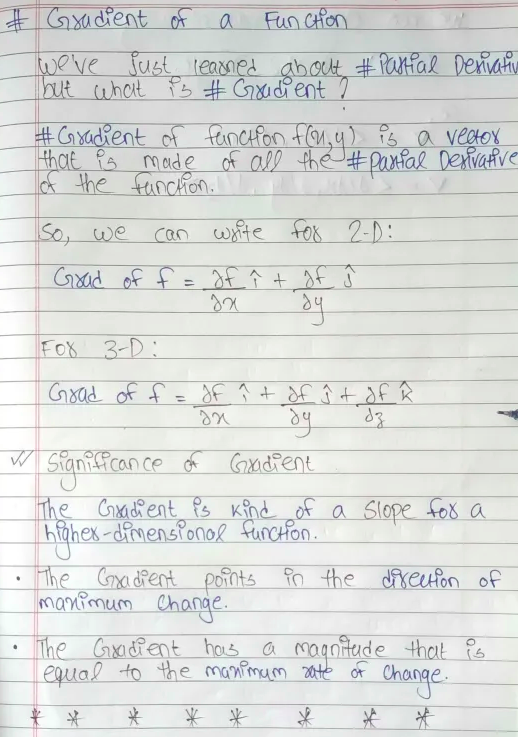 # Gradient of a Function
We've just learned about #Partial Derivativ
but what is # Gradient?
#Gradient of function f(x,y) is a vector
that is made of all the #Partial Derivative
of the function.
So, we can write for 2-D:
Grad of f = ∂f/∂x î + ∂f/∂y ĵ
For 3-D:
Grad of f = ∂f/∂x î + ∂f/∂y ĵ + ∂f/∂z k̂
Significance of Gradient
The Gradient is kind of a slope for a
higher-dimensional function.
• The Gradient points in the direction of
maximum change.
• The Gradient has a magnitude that is
equal to the maximum rate of change.
* * * * * * * *